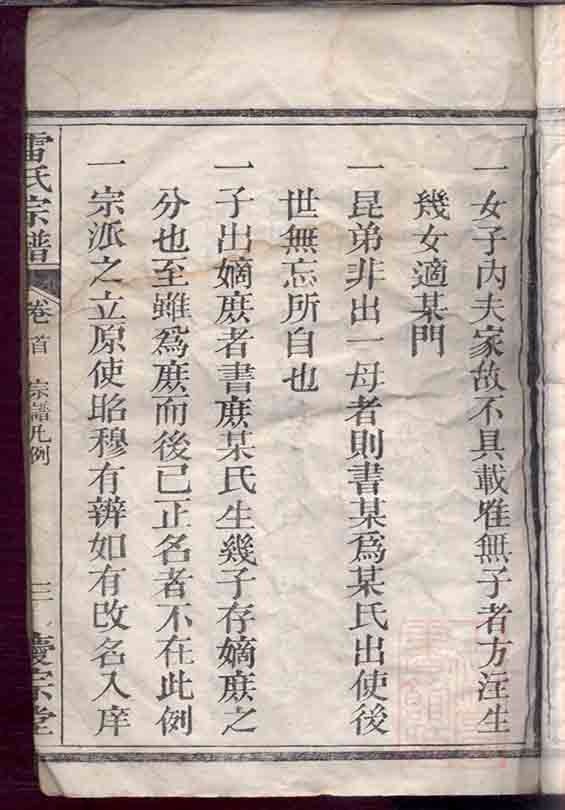 一女子內夫家故不具載唯無子者方注生
幾女適某門
一昆弟非出一母者則書某爲某氏出使後
世無忘所自也
一子出嫡庶者書庶某氏生幾子存嫡庶之
分也至雖爲庶而後已正名者不在此例
一宗派之立原使昭穆有辨如有改名入庠
雷氏宗譜
卷首
宗譜凡例
三
慶宗堂